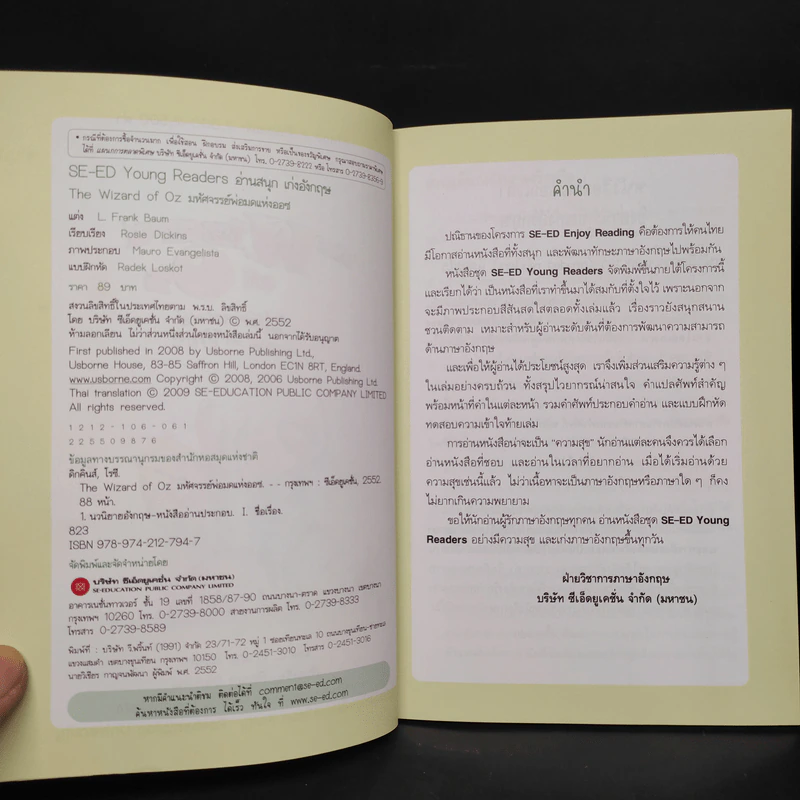 • กรณีที่ต้องการซื้อจำนวนมาก เพื่อใช้สอน ฝึกอบรม ส่งเสริมการขาย หรือเป็นของขวัญพิเศษ กรุณาสอบถามราคาพิเศษ
ได้ที่ แผนกการตลาดพิเศษ บริษัท ซีเอ็ดยูเคชั่น จำกัด (มหาชน) โทร. 0-2739-8222 หรือ โทรสาร 0-2739-8356-9
SE-ED Young Readers อ่านสนุก เก่งอังกฤษ
The Wizard of Oz มหัศจรรย์พ่อมดแห่งออซ
แต่ง L. Frank Baum
เรียบเรียง Rosie Dickins
ภาพประกอบ Mauro Evangelista
แบบฝึกหัด Radek Loskot
ราคา 89 บาท
สงวนลิขสิทธิ์ในประเทศไทยตาม พ.ร.บ. ลิขสิทธิ์
โดย บริษัท ซีเอ็ดยูเคชั่น จำกัด (มหาชน) © พ.ศ. 2552
ห้ามลอกเลียน ไม่ว่าส่วนหนึ่งส่วนใดของหนังสือเล่มนี้ นอกจากได้รับอนุญาต
First published in 2008 by Usborne Publishing Ltd.,
Usborne House, 83-85 Saffron Hill, London EC1N 8RT, England.
www.usborne.com Copyright © 2008, 2006 Usborne Publishing Ltd.
Thai translation © 2009 SE-EDUCATION PUBLIC COMPANY LIMITED
All rights reserved.
1212-106-061
225509876
ข้อมูลทางบรรณานุกรมของสำนักหอสมุดแห่งชาติ
ดิกคินส์, โรซี.
The Wizard of Oz มหัศจรรย์พ่อมดแห่งออซ. - - กรุงเทพฯ : ซีเอ็ดยูเคชั่น, 2552.
88 หน้า.
1. นวนิยายอังกฤษ-หนังสืออ่านประกอบ. I. ชื่อเรื่อง.
823
ISBN 978-974-212-794-7
จัดพิมพ์และจัดจำหน่ายโดย
บริษัท ซีเอ็ดยูเคชั่น จำกัด (มหาชน)
SE-EDUCATION PUBLIC COMPANY LIMITED
อาคารเนชั่นทาวเวอร์ ชั้น 19 เลขที่ 1858/87-90 ถนนบางนา-ตราด แขวงบางนา เขตบางนา
กรุงเทพฯ 10260 โทร. 0-2739-8000 สายงานการผลิต โทร. 0-2739-8333
โทรสาร 0-2739-8589
พิมพ์ที่ : บริษัท วี.พริ้นท์ (1991) จำกัด 23/71-72 หมู่ 1 ซอยเทียนทะเล 10 ถนนบางขุนเทียน-ชายทะเล
แขวงแสมดำ เขตบางขุนเทียน กรุงเทพฯ 10150 โทร. 0-2451-3010 โทรสาร 0-2451-3016
นายวิเชียร กาญจนพัฒนา ผู้พิมพ์ พ.ศ. 2552
หากมีคำแนะนำติชม ติดต่อได้ที่ comment@se-ed.com
ค้นหาหนังสือที่ต้องการ ได้เร็ว ทันใจ ที่ www.se-ed.com
คำนำ
ปณิธานของโครงการ SE-ED Enjoy Reading คือต้องการให้คนไทย
มีโอกาสอ่านหนังสือที่ทั้งสนุก และพัฒนาทักษะภาษาอังกฤษไปพร้อมกัน
หนังสือชุด SE-ED Young Readers จัดพิมพ์ขึ้นภายใต้โครงการนี้
และเรียกได้ว่า เป็นหนังสือที่เราทำขึ้นมาได้สมกับที่ตั้งใจไว้ เพราะนอกจาก
จะมีภาพประกอบสีสันสดใสตลอดทั้งเล่มแล้ว เรื่องราวยังสนุกสนาน
ชวนติดตาม เหมาะสำหรับผู้อ่านระดับต้นที่ต้องการพัฒนาความสามารถ
ด้านภาษาอังกฤษ
และเพื่อให้ผู้อ่านได้ประโยชน์สูงสุด เราจึงเพิ่มส่วนเสริมความรู้ต่าง ๆ
ในเล่มอย่างครบถ้วน ทั้งสรุปไวยากรณ์น่าสนใจ คำแปลศัพท์สำคัญ
พร้อมหน้าที่คำในแต่ละหน้า รวมคำศัพท์ประกอบคำอ่าน และแบบฝึกหัด
ทดสอบความเข้าใจท้ายเล่ม
การอ่านหนังสือน่าจะเป็น “ความสุข” นักอ่านแต่ละคนจึงควรได้เลือก
อ่านหนังสือที่ชอบ และอ่านในเวลาที่อยากอ่าน เมื่อได้เริ่มอ่านด้วย
ความสุขเช่นนี้แล้ว ไม่ว่าเนื้อหาจะเป็นภาษาอังกฤษหรือภาษาใด ๆ ก็คง
ไม่ยากเกินความพยายาม
ขอให้นักอ่านผู้รักภาษาอังกฤษทุกคน อ่านหนังสือชุด SE-ED Young
Readers อย่างมีความสุข และเก่งภาษาอังกฤษขึ้นทุกวัน
ฝ่ายวิชาการภาษาอังกฤษ
บริษัท ซีเอ็ดยูเคชั่น จำกัด (มหาชน)